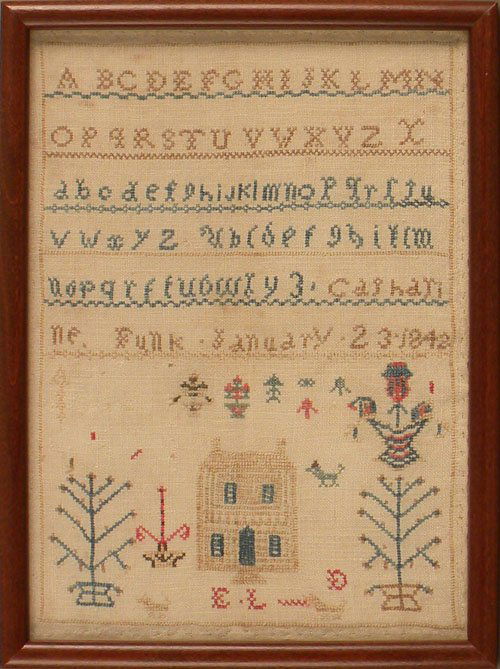 A B C D E F G H I J K L M N
O P q R S T U V W X Y Z X
a b c d e f g h i j k l m n o p q r ſ t u
v w x y z a b c d e f g h i k l m
n o p q r ſ t u v w x y z . Cathari
ne . Funk . January . 23 . 1842
E . L
G